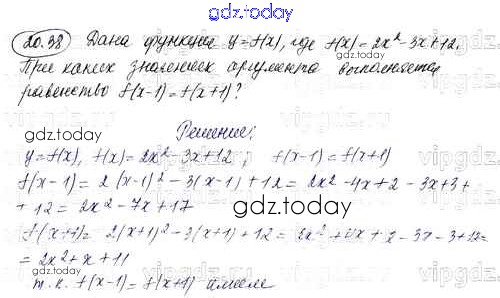 gdz.today
20.38 Дана функция y=f(x), где f(x)=2x²-3x+12.
При каких значениях аргумента выполняется
равенство f(x-1)=f(x+1)?
gdz.today
Решение:
y=f(x), f(x)=2x²-3x+12, f(x-1)=f(x+1)
f(x-1)=2(x-1)²-3(x-1)+12=2x²-4x+2-3x+3+
+12=2x²-7x+17
gdz.today
f(x+1)=2(x+1)²-3(x+1)+12=2x²+4x+2-3x-3+12=
=2x²+x+11
т.к. f(x-1)=f(x+1) имеем
gdz.today